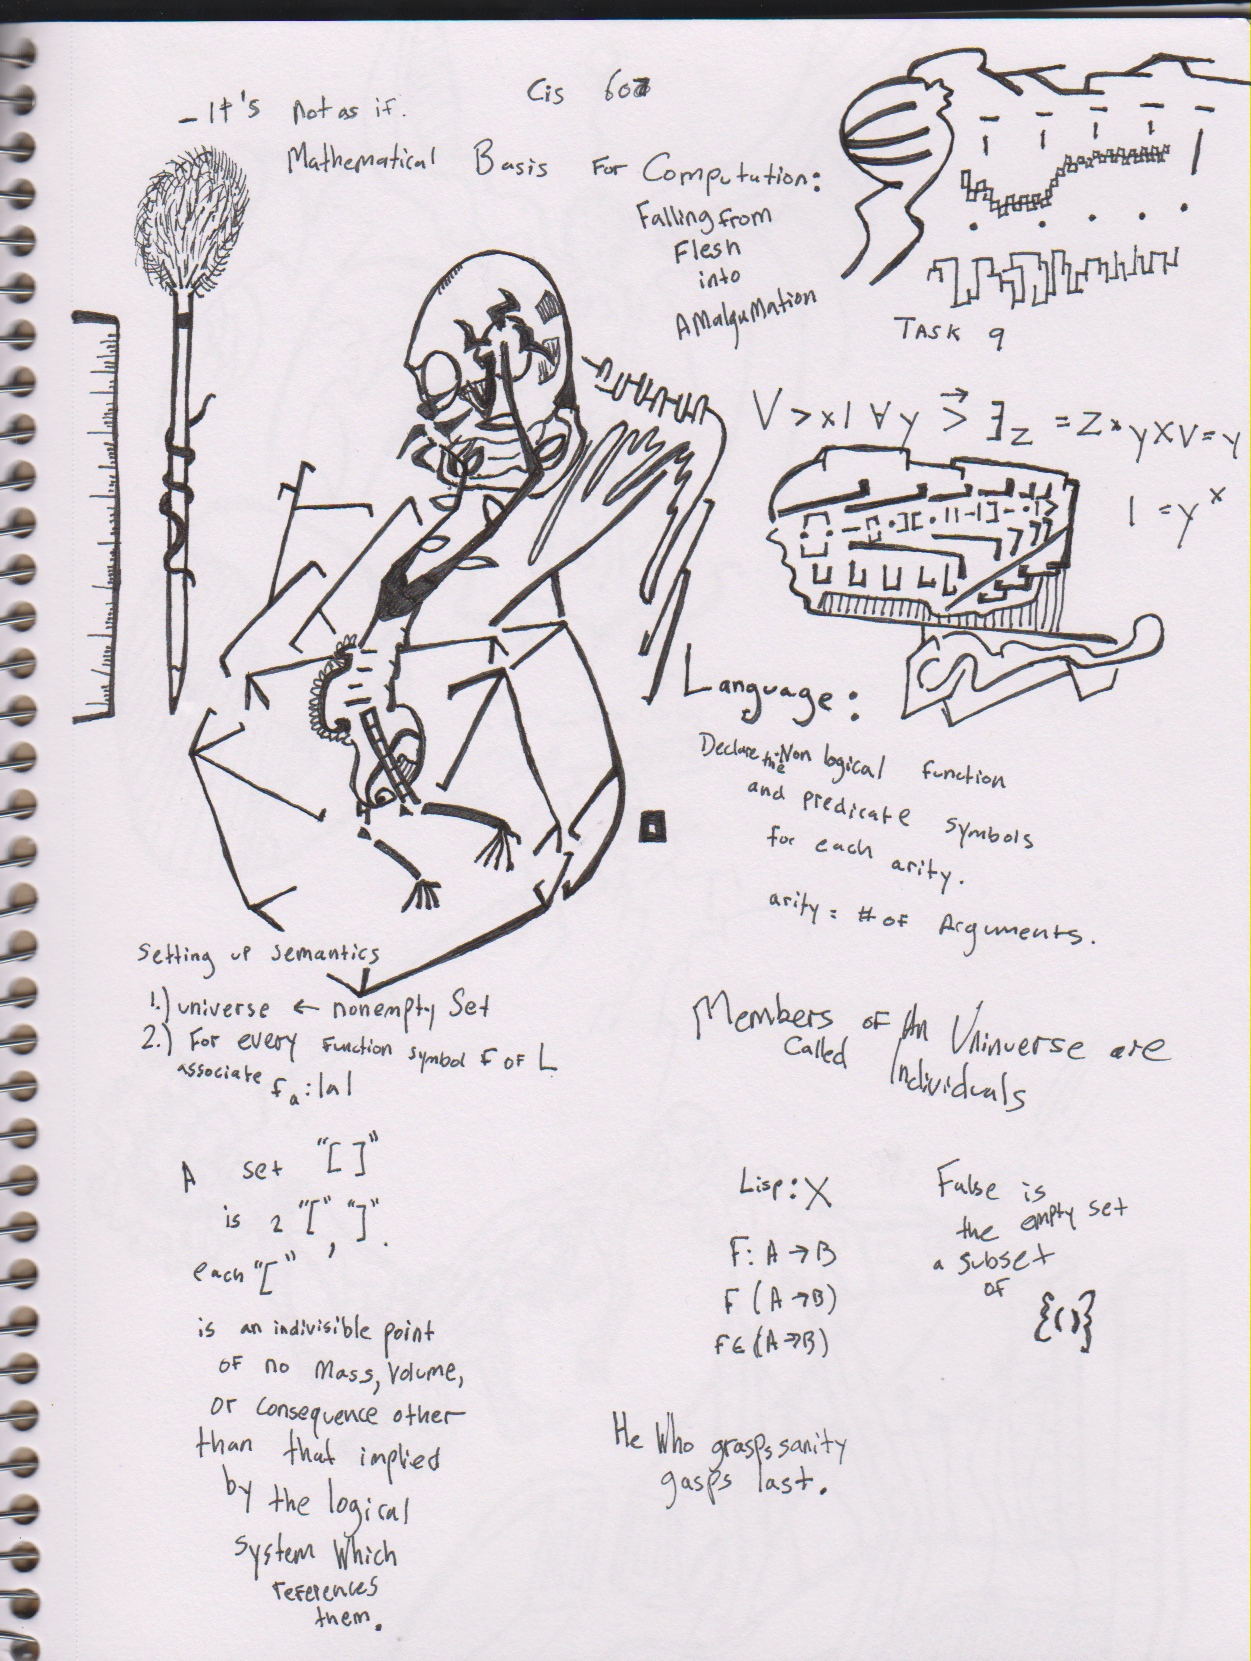 Cis 607
- It's Not as if.
Mathematical Basis For Computution:
Falling from
Flesh
into
AMalguMation
TASK 9
V > x | ∀ y > ∃z = Z * y X V = y
1 = y^x
Language:
Declare the Non logical function
and predicate symbols
for each arity.
arity = # of Arguments.
Setting up semantics
1.) universe ← nonempty Set
2.) For every function symbol f of L
associate fₐ : |a|
Members of An Uninverse are
Called Individuals
A set "[ ]"
is 2 "[", "]".
each "["
is an indivisible point
of no Mass, Volume,
or consequence other
than that implied
by the logical
system Which
references
them.
Lisp: X
F: A → B
F (A → B)
F ∈ (A → B)
False is
the empty set
a subset
of
{()}
He Who grasps sanity
gasps last.